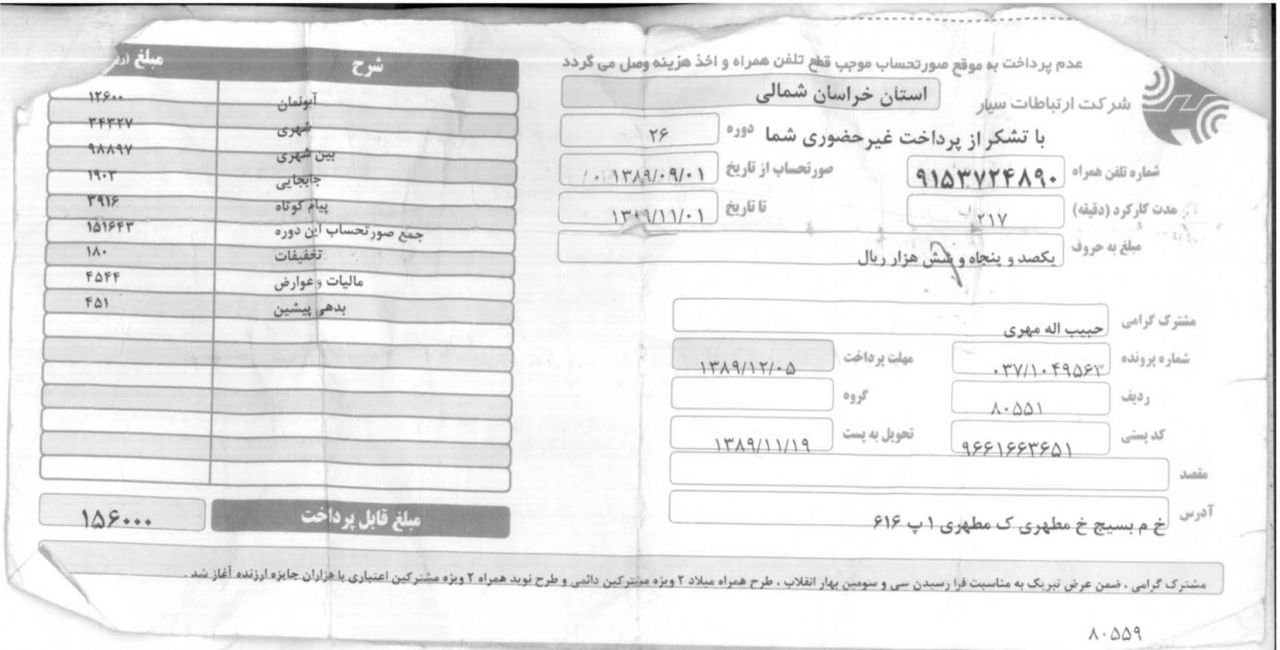 عدم پرداخت به موقع صورتحساب موجب قطع تلفن همراه و اخذ هزینه وصل می گردد
شرکت ارتباطات سیار
استان خراسان شمالی
با تشکر از پرداخت غیرحضوری شما
دوره ۲۶
شماره تلفن همراه ۹۱۵۳۷۲۴۸۹۰
صورتحساب از تاریخ ۱۳۸۹/۰۹/۰۱
مدت کارکرد (دقیقه) ۲۱۷
تا تاریخ ۱۳۸۹/۱۱/۰۱
مبلغ به حروف یکصد و پنجاه و شش هزار ریال
مشترک گرامی حبیب اله مهری
شماره پرونده ۰۳۷/۱۰۴۹۵۶۳
مهلت پرداخت ۱۳۸۹/۱۲/۰۵
ردیف ۸۰۵۵۱
گروه
کد پستی ۹۶۶۱۶۶۳۶۵۱
تحویل به پست ۱۳۸۹/۱۱/۱۹
مقصد
آدرس خ م بسیج خ مطهری ک مطهری ۱ پ ۶۱۶
شرح مبلغ
آبونمان ۱۲۶۰۰
شهری ۳۴۳۲۷
بین شهری ۹۸۸۹۷
جابجایی ۱۹۰۳
پیام کوتاه ۳۹۱۶
جمع صورتحساب این دوره ۱۵۱۶۴۳
تخفیفات ۱۸۰
مالیات و عوارض ۴۵۴۴
بدهی پیشین ۴۵۱
مبلغ قابل پرداخت ۱۵۶۰۰۰
مشترک گرامی ، ضمن عرض تبریک به مناسبت فرا رسیدن سی و سومین بهار انقلاب ، طرح همراه میلاد ۲ ویژه مشترکین دائمی و طرح نوید همراه ۲ ویژه مشترکین اعتباری با هزاران جایزه ارزنده آغاز شد .
۸۰۵۵۹